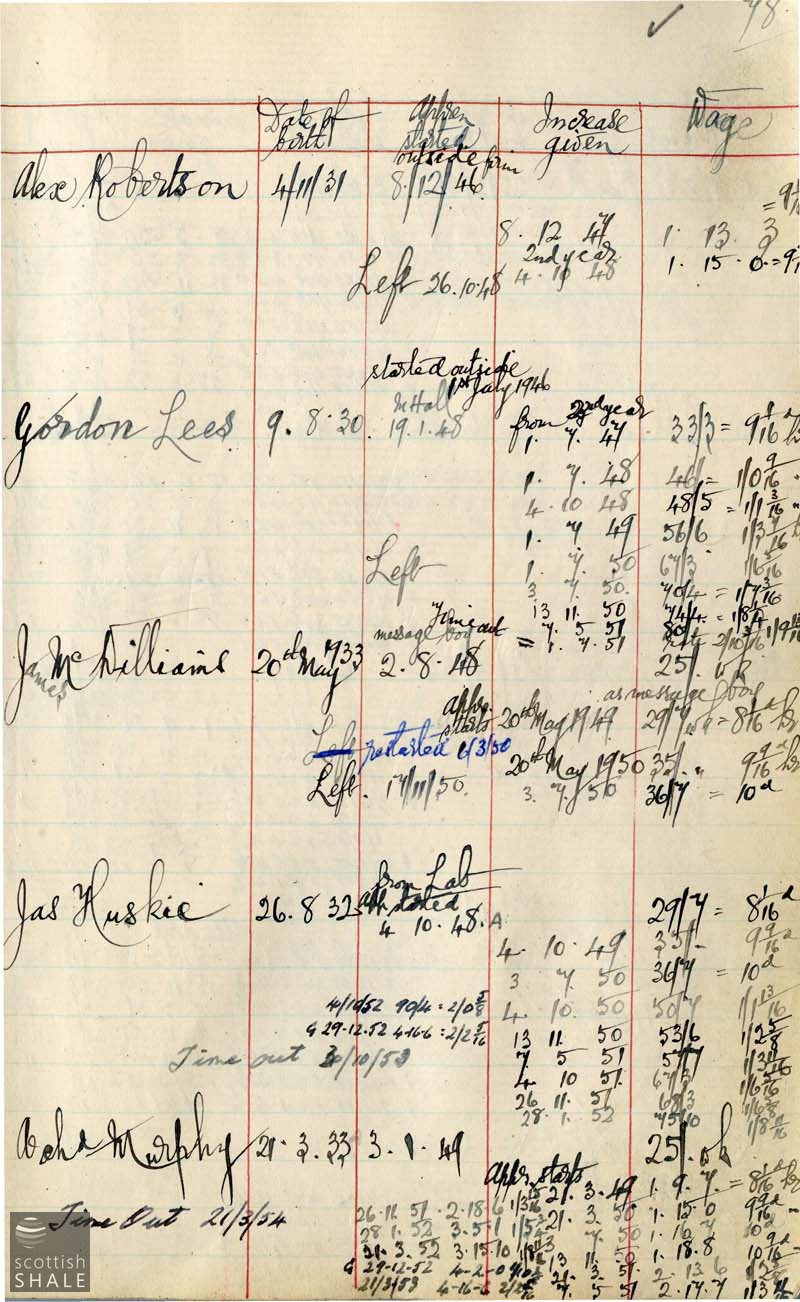 ✓ 78
Date of birth
Appren started
Increase given
Wage
Alex Robertson 4/11/31 outside firm 8/12/46
8. 12 47 1. 13. 3
2nd year
Left 26.10.48 4. 10 48 1. 15. 0.
started outside
1st July 1946
Gordon Lees 9. 8. 30 19.1.48 from 2nd year
1. 7. 47 33/3 = 9 1/16
1. 7. 48 46/ = 1/0 9/16
4. 10 48 48/5 = 1/1 3/16
1. 7 49 56/6 1/3 7/16
Left 1. 7. 50 67/3
3 7. 50. 70/4 = 1/7 3/16
13 11. 50 74/4 = 1/8 1/4
Time out = 7. 5 51
1. 7. 51
James McWilliams 20th May 1933 message boy 2. 8. 48 25/. wk
as message boy
Appr. starts 20th May 1949 29/7 wk = 8 1/16 d hr
Left restarted 6/3/50
20th May 1950 35/. " 9 9/16 d hr
Left. 17/11/50. 3. 7. 50 36/7 = 10d
from Lab
Jas Huskie 26. 8 32 app started 4 10. 48. A 29/7 = 8 1/16 d
4. 10. 49 35/- 9 9/16 d
3 7 50 36/7 = 10d
4/10/52 90/4 = 2/0 5/8 4. 10. 50 50/7 1/1 13/16
G 29-12-52 4-16-6 = 2/2 5/16 13 11. 50 53/6 1/2 5/8
Time out 30/10/53 7 5 51 57/7
4 10 51. 67/3 1/6 5/16
26 11. 51 68/3
28. 1. 52 75/10 1/8 11/16
Murphy 21. 3. 33 3. 1. 49 25/. wk
Appr. starts 21. 3. 49 1. 9. 7. = 8 1/16 d hr
Time Out 21/3/54
26. 11. 51 2. 18. 6 21. 3. 50 1. 15. 0 9 9/16 d
28. 1. 52 3. 5. 1 7. 50 1. 16. 7 10d
21. 3. 52 3. 15. 10 13 11 1. 18. 8 10 9/16
G 29-12-52 4-2-0 21. 3. 51 2. 13 6
21/3/53 4-16-6 7. 5 51 2. 17. 7
scottish
SHALE